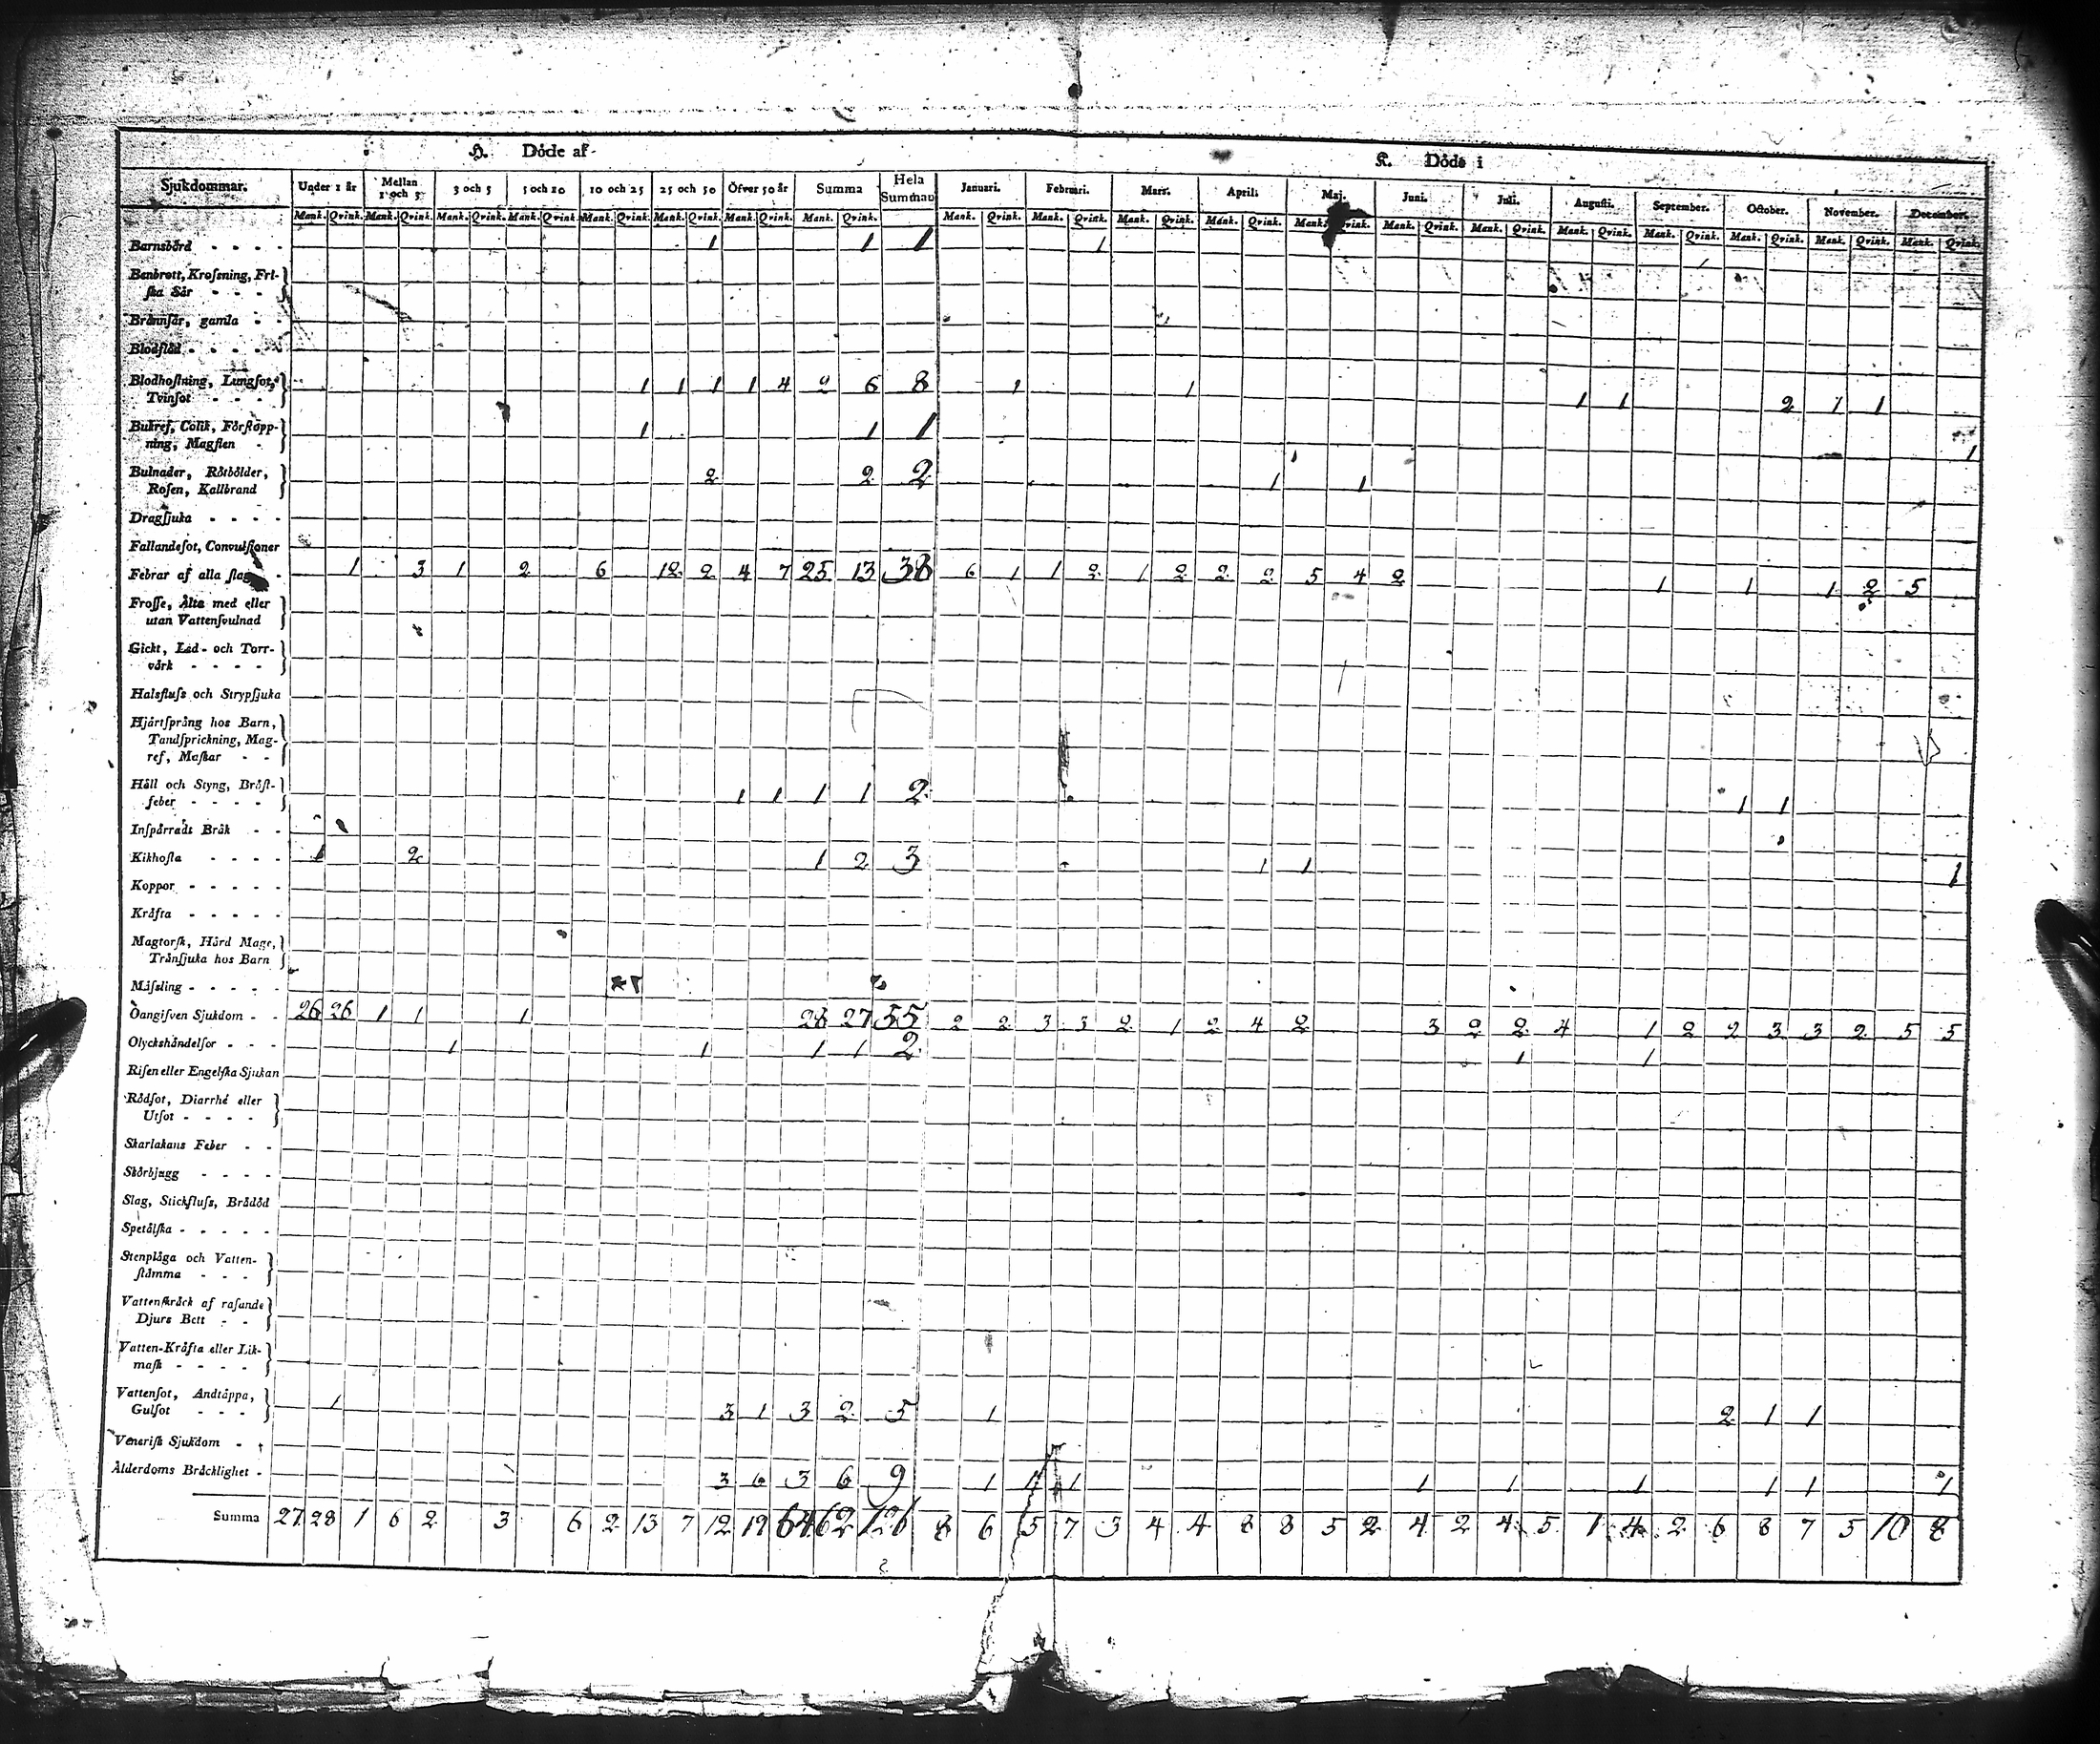 H. Döde af
K. Döde i
Sjukdommar. Under 1 år Mellan 1 och 3 3 och 5 5 och 10 10 och 25 25 och 50 Öfver 50 år Summa Hela Summan Januari. Februari. Mars. April. Maj. Juni. Juli. Augusti. September. October. November. December.
Mank. Qvink. Mank. Qvink. Mank. Qvink. Mank. Qvink. Mank. Qvink. Mank. Qvink. Mank. Qvink. Mank. Qvink. Mank. Qvink. Mank. Qvink. Mank. Qvink. Mank. Qvink. Mank. Qvink. Mank. Qvink. Mank. Qvink. Mank. Qvink. Mank. Qvink. Mank. Qvink. Mank. Qvink. Mank. Qvink.
Barnsbörd - - - - 1 1 1 1
Benbrott, Krosning, Fri-
ska Sår - - -
Brännsår, gamla - -
Blodflöd - - - - -
Blodhostning, Lungsot,
Tvinsot - - - 1 1 1 1 4 2 6 8 1 1 1 1 2 1 1
Bukref, Colik, Förstopp-
ning, Magsten - 1 1 1 1
Bulnader, Rötbölder,
Rosen, Kallbrand 2 2 2 1 1
Dragsjuka - - - -
Fallandesot, Convulsioner
Febrar af alla slag - 1 3 1 2 6 12 2 4 7 25 13 38 6 1 1 2 1 2 2 2 5 4 2 1 1 1 2 5
Frosse, Älta med eller
utan Vattensvulnad
Gickt, Led- och Torr-
värk - - - -
Halsfluss och Strypsjuka
Hjärtsprång hos Barn,
Tandsprickning, Mag-
ref, Maskar - -
Håll och Styng, Bröst-
feber - - - - 1 1 1 1 2 1 1
Inspärradt Bråk - -
Kikhosta - - - - 1 2 1 2 3 1 1 1
Koppor - - - - -
Kräfta - - - - -
Magtorsk, Hård Mage,
Tränsjuka hos Barn
Mässling - - - - -
Oangifven Sjukdom - - 26 26 1 1 1 28 27 55 2 2 3 3 2 1 2 4 2 3 2 2 4 1 2 2 3 3 2 5 5
Olyckshändelser - - - 1 1 1 1 2 1 1
Risen eller Engelska Sjukan
Rödsot, Diarrhé eller
Utsot - - - -
Skarlakans Feber - -
Skörbjugg - - - -
Slag, Stickfluss, Brådöd
Spetälska - - - - -
Stenplåga och Vatten-
stämma - - -
Vattenskräck af rasande
Djurs Bett - -
Vatten-Kräfta eller Lik-
mask - - - -
Vattensot, Andtäppa,
Gulsot - - - 1 3 1 3 2 5 1 2 1 1
Venerisk Sjukdom - -
Ålderdoms Bräcklighet - 3 6 3 6 9 1 1 1 1 1 1 1 1 1
Summa 27 28 1 6 2 3 6 2 13 7 12 19 64 62 126 8 6 5 7 3 4 4 8 8 5 2 4 2 4 5 1 4 2 6 8 7 5 10 8